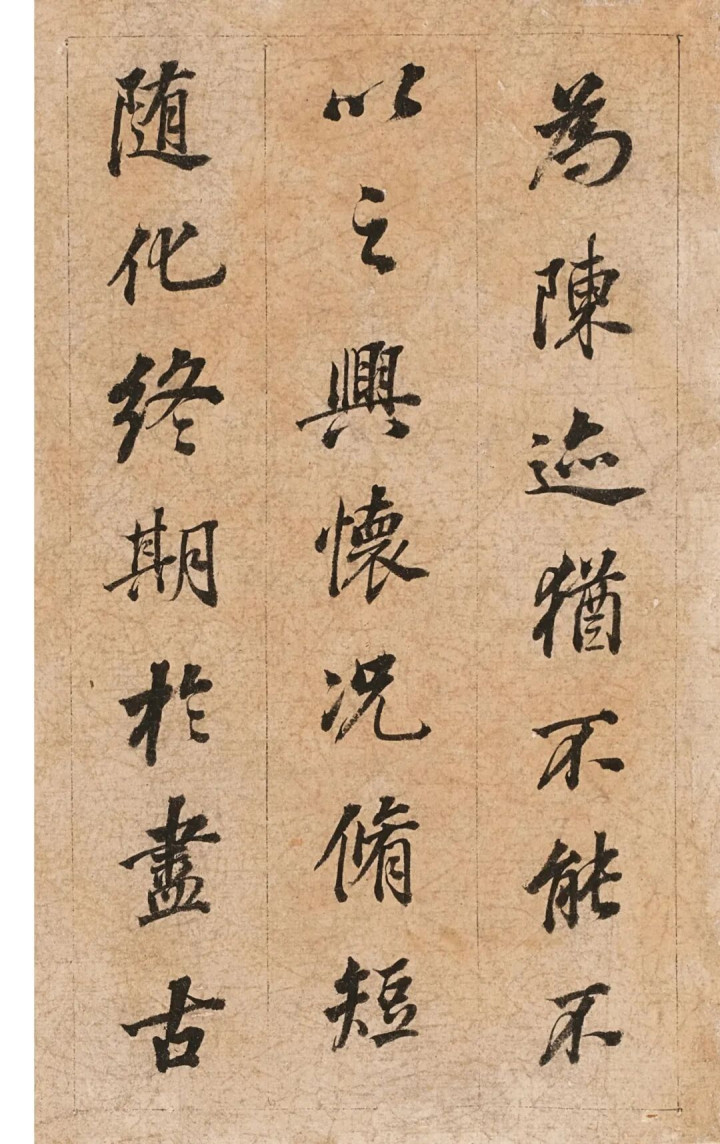 為陳迹猶不能不
以之興懷況脩短
随化終期於盡古